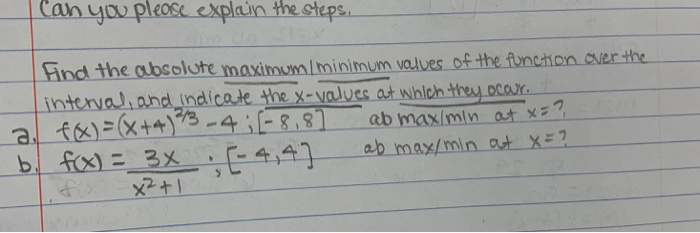 Can you please explain the steps.
Find the absolute maximum/minimum values of the function over the
interval, and indicate the x-values at which they occur.
a. f(x)=(x+4)^2/3 -4 ; [-8,8] ab max/min at x=?
b. f(x) = 3x/x²+1 ; [-4,4] ab max/min at x=?